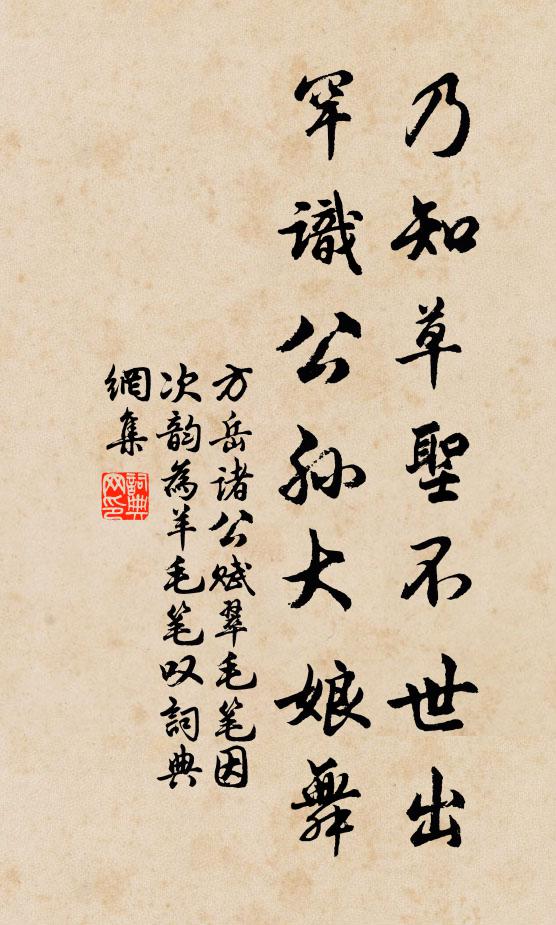 乃知草聖不世出
罕識公孫大娘舞
方岳諸公賦翠毛筆因
次韵為羊毛笔叹詞典
網集
詞典
网印